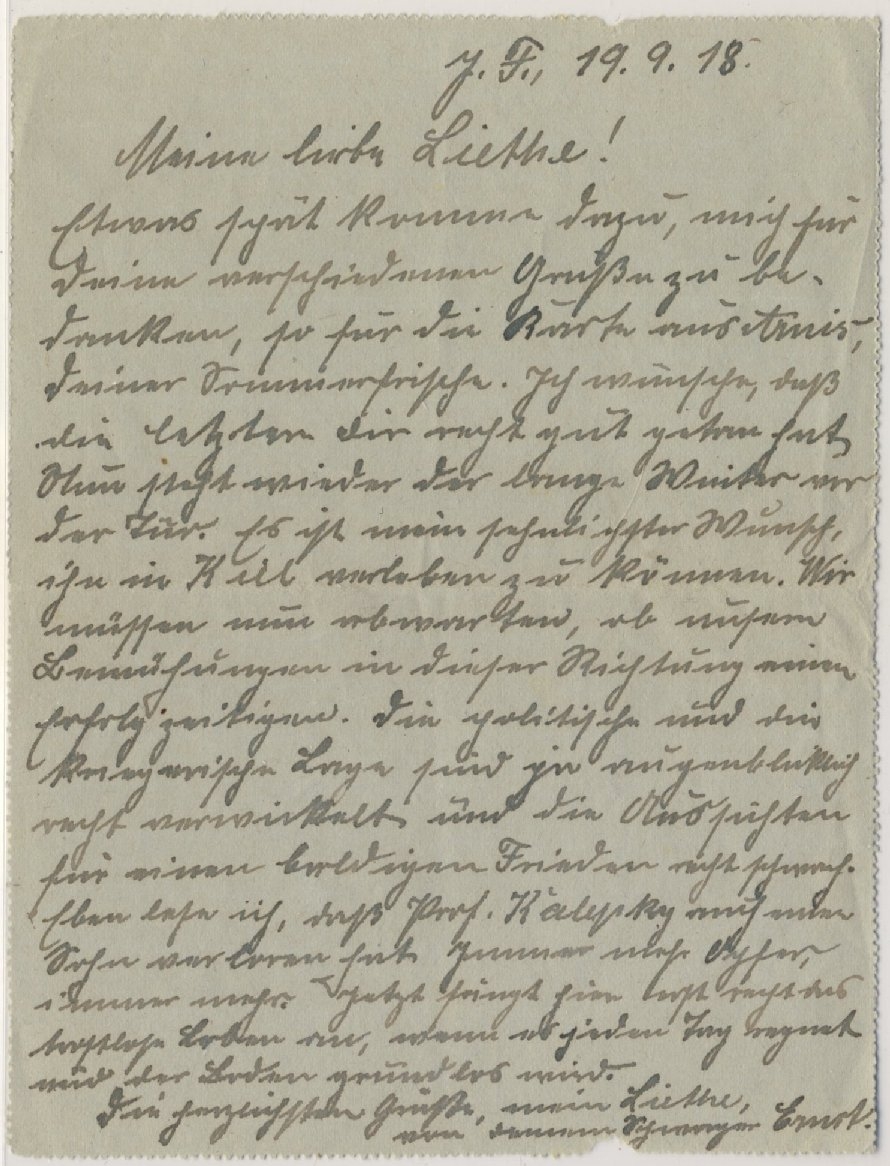 J. F., 19. 9. 18.
Meine liebe Liethe!
Etwas spät komme dazu, mich für
Deine verschiedenen Grüße zu be-
danken, so für die Karte aus Arnis,
Deiner Sommerfrische. Ich wünsche, daß
die letztere Dir recht gut getan hat.
Nun steht wieder der lange Winter vor
der Tür. Es ist mein sehnlichster Wunsch,
ihn in Kiel verleben zu können. Wir
müssen nun abwarten, ob unsere
Bemühungen in dieser Richtung einen
Erfolg zeitigen. Die politische und die
kriegerische Lage sind ja augenblicklich
recht verwickelt und die Aussichten
für einen baldigen Frieden recht schwach.
Eben lese ich, daß Prof. Kalepky auch einen
Sohn verloren hat. Immer mehr Opfer,
immer mehr. Jetzt fängt hier erst recht das
trostlose Leben an, wenn es jeden Tag regnet
und der Boden grundlos wird.
Die herzlichsten Grüße, mein Liethe,
von Deinem Schwager Ernst.